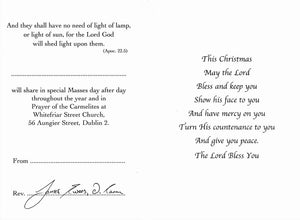 And they shall have no need of light of lamp,
or light of sun, for the Lord God
will shed light upon them.
(Apoc. 22.5)
will share in special Masses day after day
throughout the year and in
Prayer of the Carmelites at
Whitefriar Street Church,
56 Aungier Street, Dublin 2.
From
Rev. James
This Christmas
May the Lord
Bless and keep you
Show his face to you
And have mercy on you
Turn His countenance to you
And give you peace.
The Lord Bless You